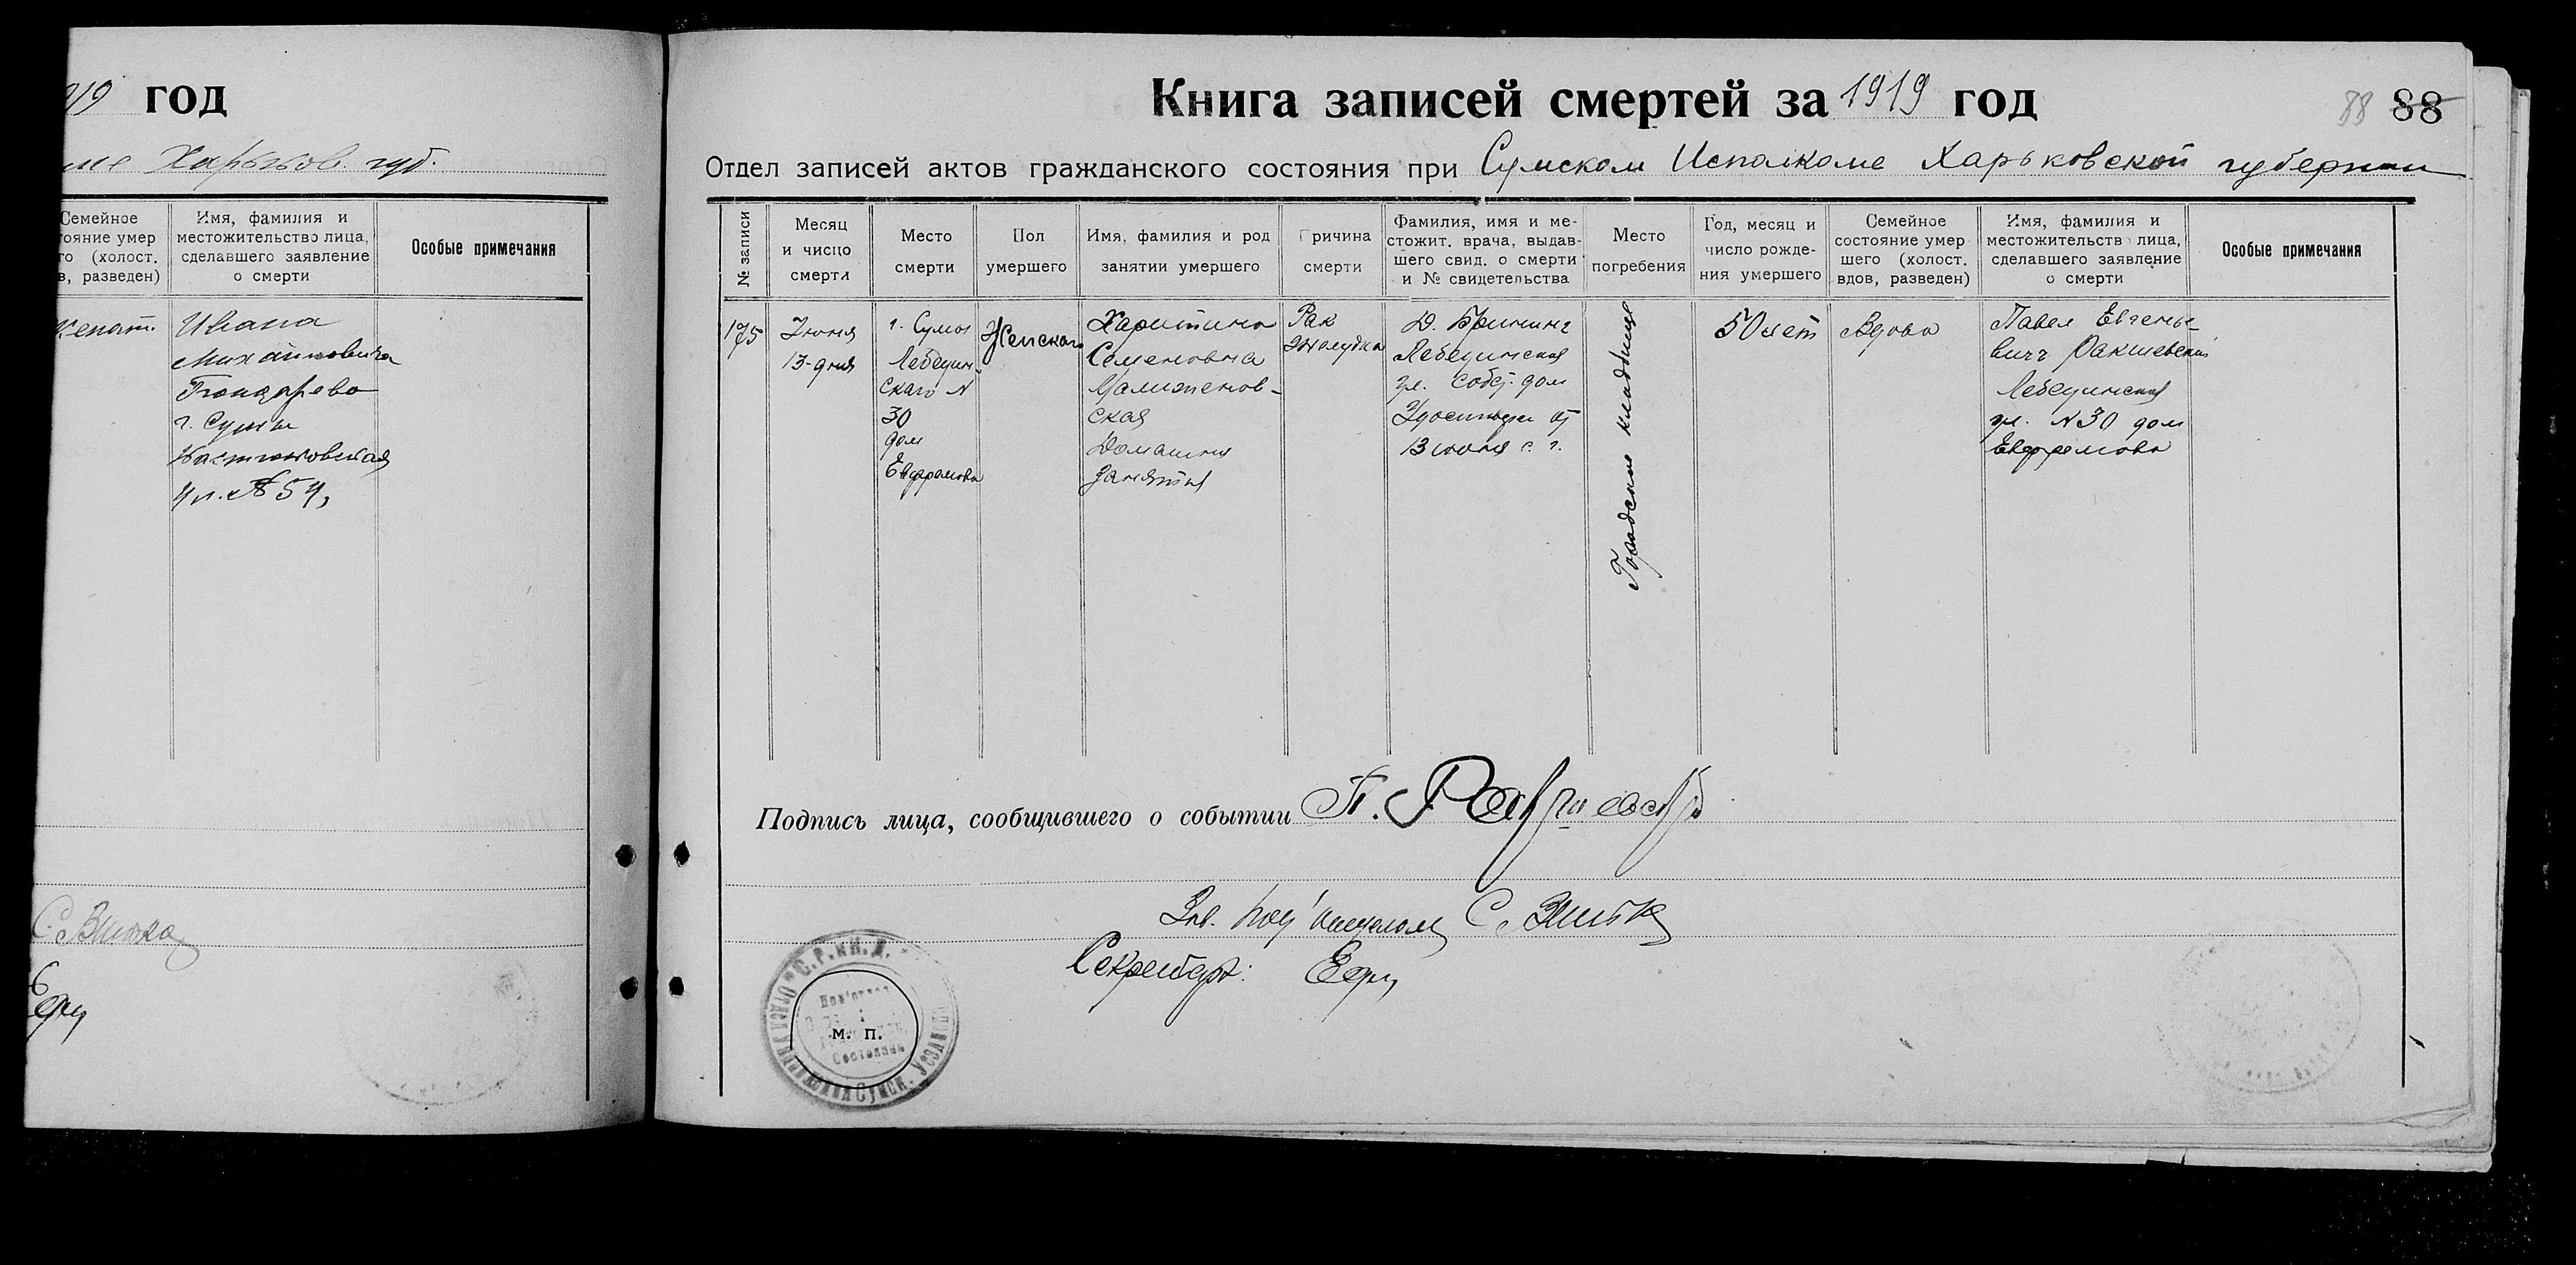 919 год
ме Харьков. губ.
Семейное
тояние умер
го (холост.
в, разведен)
Имя, фамилия и
местожительство лица,
сделавшего заявление
о смерти
Особые примечания
женат.
Ивана
Михайловича
Гончарево
г. Сумы
ул. № 54,
С. Змика
Книга записей смертей за 1919 год
88 88
Отдел записей актов гражданского состояния при Сумском Исполкоме Харьковской губернии
№ записи
Месяц
и число
смерти
Место
смерти
Пол
умершего
Имя, фамилия и род
занятии умершего
Причина
смерти
Фамилия, имя и ме-
стожит. врача, выдав-
шего свид. о смерти
и № свидетельства
Место
погребения
Год, месяц и
число рожде-
ния умершего
Семейное
состояние умер
шего (холост.
вдов, разведен)
Имя, фамилия и
местожительств лица,
сделавшего заявление
о смерти
Особые примечания
175
Июня
13-дня
г. Сумы
Лебедин-
скаго N
30
дом
Евфремова
Женскаго
Харитина
Семеновна
ская
Домашния
занятия
Рак
желудка
Д. Брининг
Лебединская
ул. собс. дом
от
13 июня с. г.
Городское кладбище
50 лет
Вдова
Павел Евгенье-
вич Ракшевский
Лебединская
ул. N 30 дом
Евфремова
Подпись лица, сообщившего о событии П.
Зав. Под'отделом С. Змика
Секретарь:
м. п.